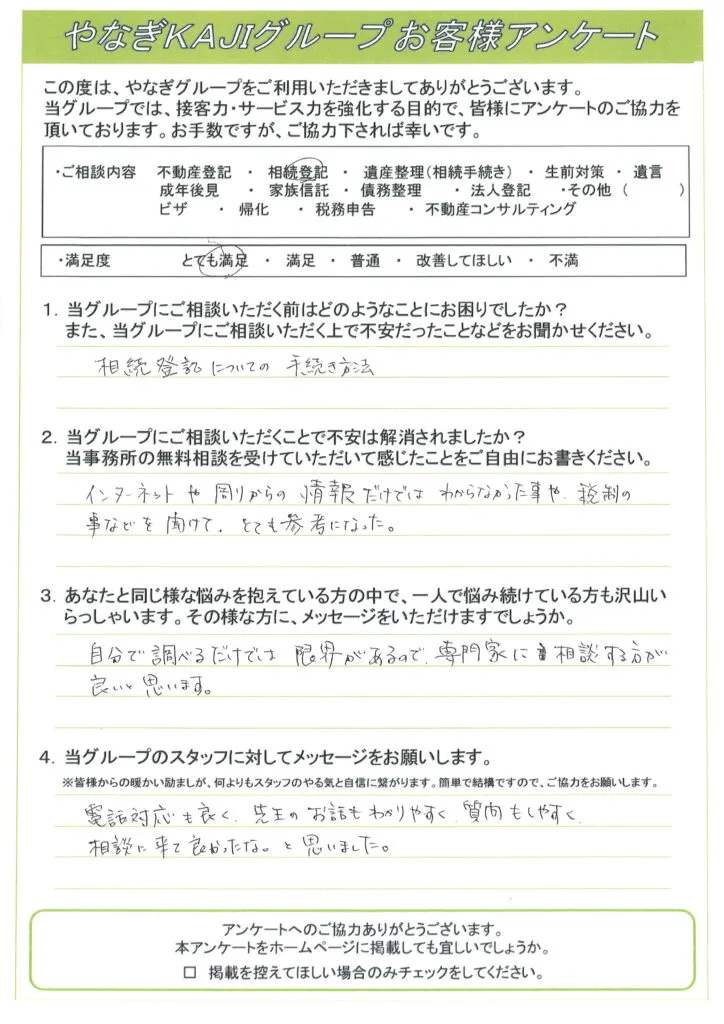 やなぎKAJIグループ お客様アンケート
この度は、やなぎグループをご利用いただきましてありがとうございます。
当グループでは、接客力・サービス力を強化する目的で、皆様にアンケートのご協力を
頂いております。お手数ですが、ご協力下されば幸いです。
・ご相談内容 不動産登記 ・ 相続登記 ・ 遺産整理(相続手続き) ・ 生前対策 ・ 遺言
成年後見 ・ 家族信託 ・ 債務整理 ・ 法人登記 ・その他 ( )
ビザ ・ 帰化 ・ 税務申告 ・ 不動産コンサルティング
・満足度 とても満足 ・ 満足 ・ 普通 ・ 改善してほしい ・ 不満
1. 当グループにご相談いただく前はどのようなことにお困りでしたか?
また、当グループにご相談いただく上で不安だったことなどをお聞かせください。
相続登記についての 手続き方法
2. 当グループにご相談いただくことで不安は解消されましたか?
当事務所の無料相談を受けていただいて感じたことをご自由にお書きください。
インターネットや周りからの情報だけではわからなかった事や、税制の
事などを聞けて、とても参考になった。
3. あなたと同じ様な悩みを抱えている方の中で、一人で悩み続けている方も沢山い
らっしゃいます。その様な方に、メッセージをいただけますでしょうか。
自分で調べるだけでは 限界があるので、専門家に相談する方が
良いと思います。
4. 当グループのスタッフに対してメッセージをお願いします。
※皆様からの暖かい励ましが、何よりもスタッフのやる気と自信に繋がります。簡単で結構ですので、ご協力をお願いします。
電話対応も良く、先生のお話もわかりやすく、質問もしやすく、
相談に来て良かったな。と思いました。
アンケートへのご協力ありがとうございます。
本アンケートをホームページに掲載しても宜しいでしょうか。
□ 掲載を控えてほしい場合のみチェックをしてください。